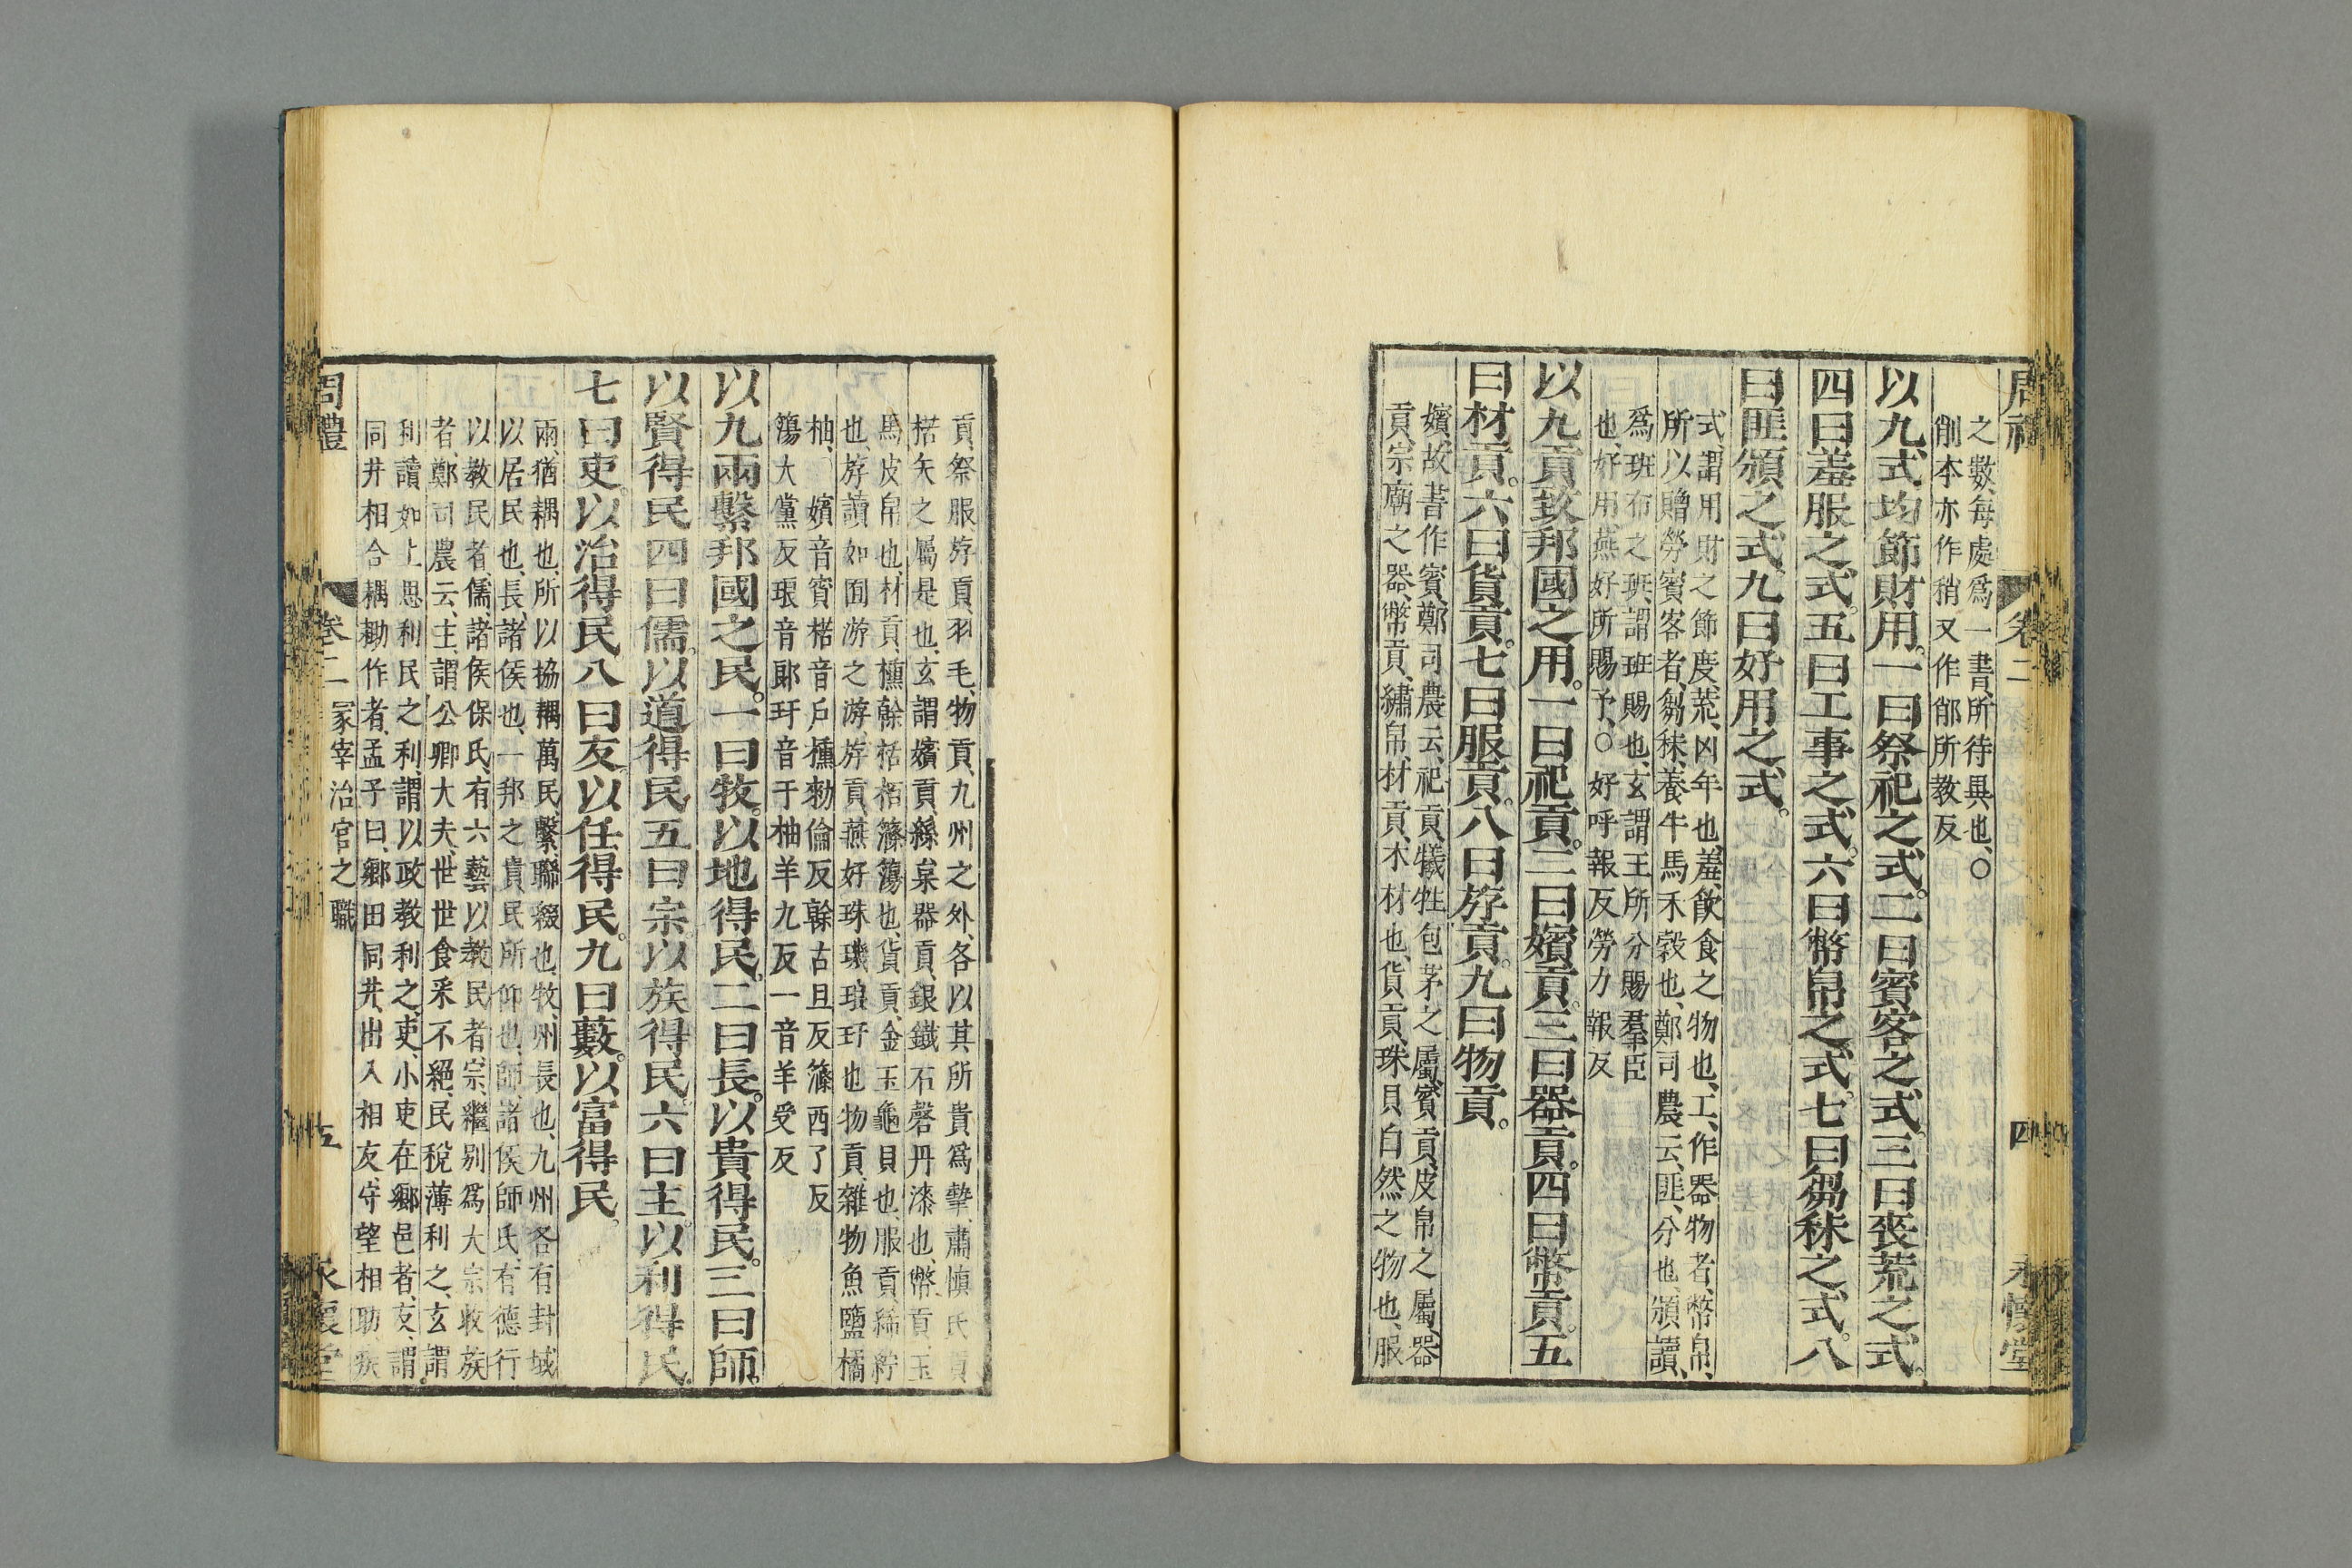 周禮
卷二
四
永懷堂
之數、每處爲一書、所待異也、○
削本亦作稍又作郋所教反
以九式均節財用。一曰祭祀之式。二曰賓客之式。三曰喪荒之式。
四曰羞服之式。五曰工事之式。六曰幣帛之式。七曰芻秣之式。八
曰匪頒之式。九曰好用之式。
式、謂用財之節度荒、凶年也、羞、飲食之物也、工、作器物者、幣帛、
所以贈勞賓客者、芻秣、養牛馬禾穀也、鄭司農云、匪、分也、頒、讀
爲班布之班、謂班賜也、玄謂王所分賜羣臣
也、好用、燕好所賜予、○好呼報反勞力報反
以九貢致邦國之用。一曰祀貢。二曰嬪貢。三曰器貢。四曰幣貢。五
曰材貢。六曰貨貢。七曰服貢。八曰斿貢。九曰物貢。
嬪、故書作賓、鄭司農云、祀貢、犧牲包茅之屬、賓貢、皮帛之屬、器
貢、宗廟之器、幣貢、繡帛、材貢、木材也、貨貢、珠貝自然之物也、服
貢、祭服斿貢、羽毛、物貢、九州之外、各以其所貴爲摯、肅愼氏貢
楛矢之屬是也、玄謂嬪貢、絲枲器貢、銀鐵石磬丹漆也、幣貢、玉
馬皮帛也、材貢、櫄榦栝柏篠簜也、貨貢、金玉龜貝也、服貢絺紵
也、斿讀如囿游之游、斿貢、燕好珠璣琅玕也物貢、雜物魚鹽橘
柚、嬪音賓楛音戶櫄勑倫反榦古旦反篠西了反
簜大黨反琅音郞玕音干柚羊九反一音羊受反
以九兩繫邦國之民。一曰牧。以地得民。二曰長。以貴得民。三曰師。
以賢得民四曰儒。以道得民五曰宗。以族得民。六曰主。以利得民。
七曰吏。以治得民八曰友。以任得民。九曰藪。以富得民。
兩、猶耦也、所以協耦萬民、繫、聯綴也、牧、州長也、九州各有封域
以居民也、長、諸侯也、一邦之貴、民所仰也、師、諸侯師氏、有德行
以教民者儒、諸侯保氏有六藝以教民者宗、繼別爲大宗收族
者、鄭司農云、主、謂公卿大夫、世世食采不絕、民稅薄利之、玄謂
利讀如上思利民之利、謂以政教利之、吏、小吏在鄉邑者、友、謂
同井相合耦耡作者、孟子曰、鄉田同井、出入相友、守望相助、疾
周禮
卷二
冢宰治官之職
五
永懷堂